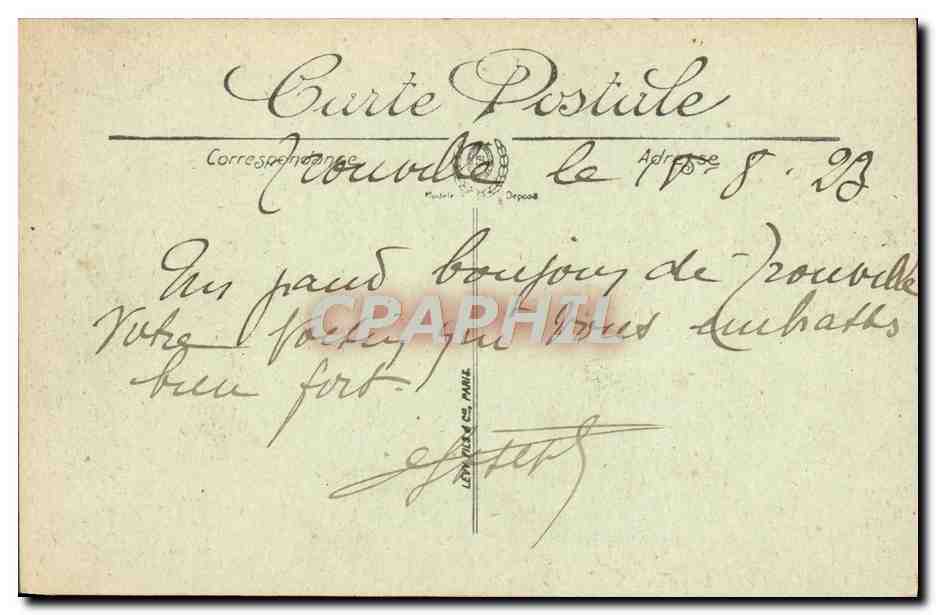 Carte Postale
Correspondance
Adresse
Modèle Déposé
Trouville le 8.23
Un grand bonjour de Trouville
Votre qui vous embrasse
bien fort.
CPAPHIL
LÉVY FILS & Cie, PARIS
Joseph